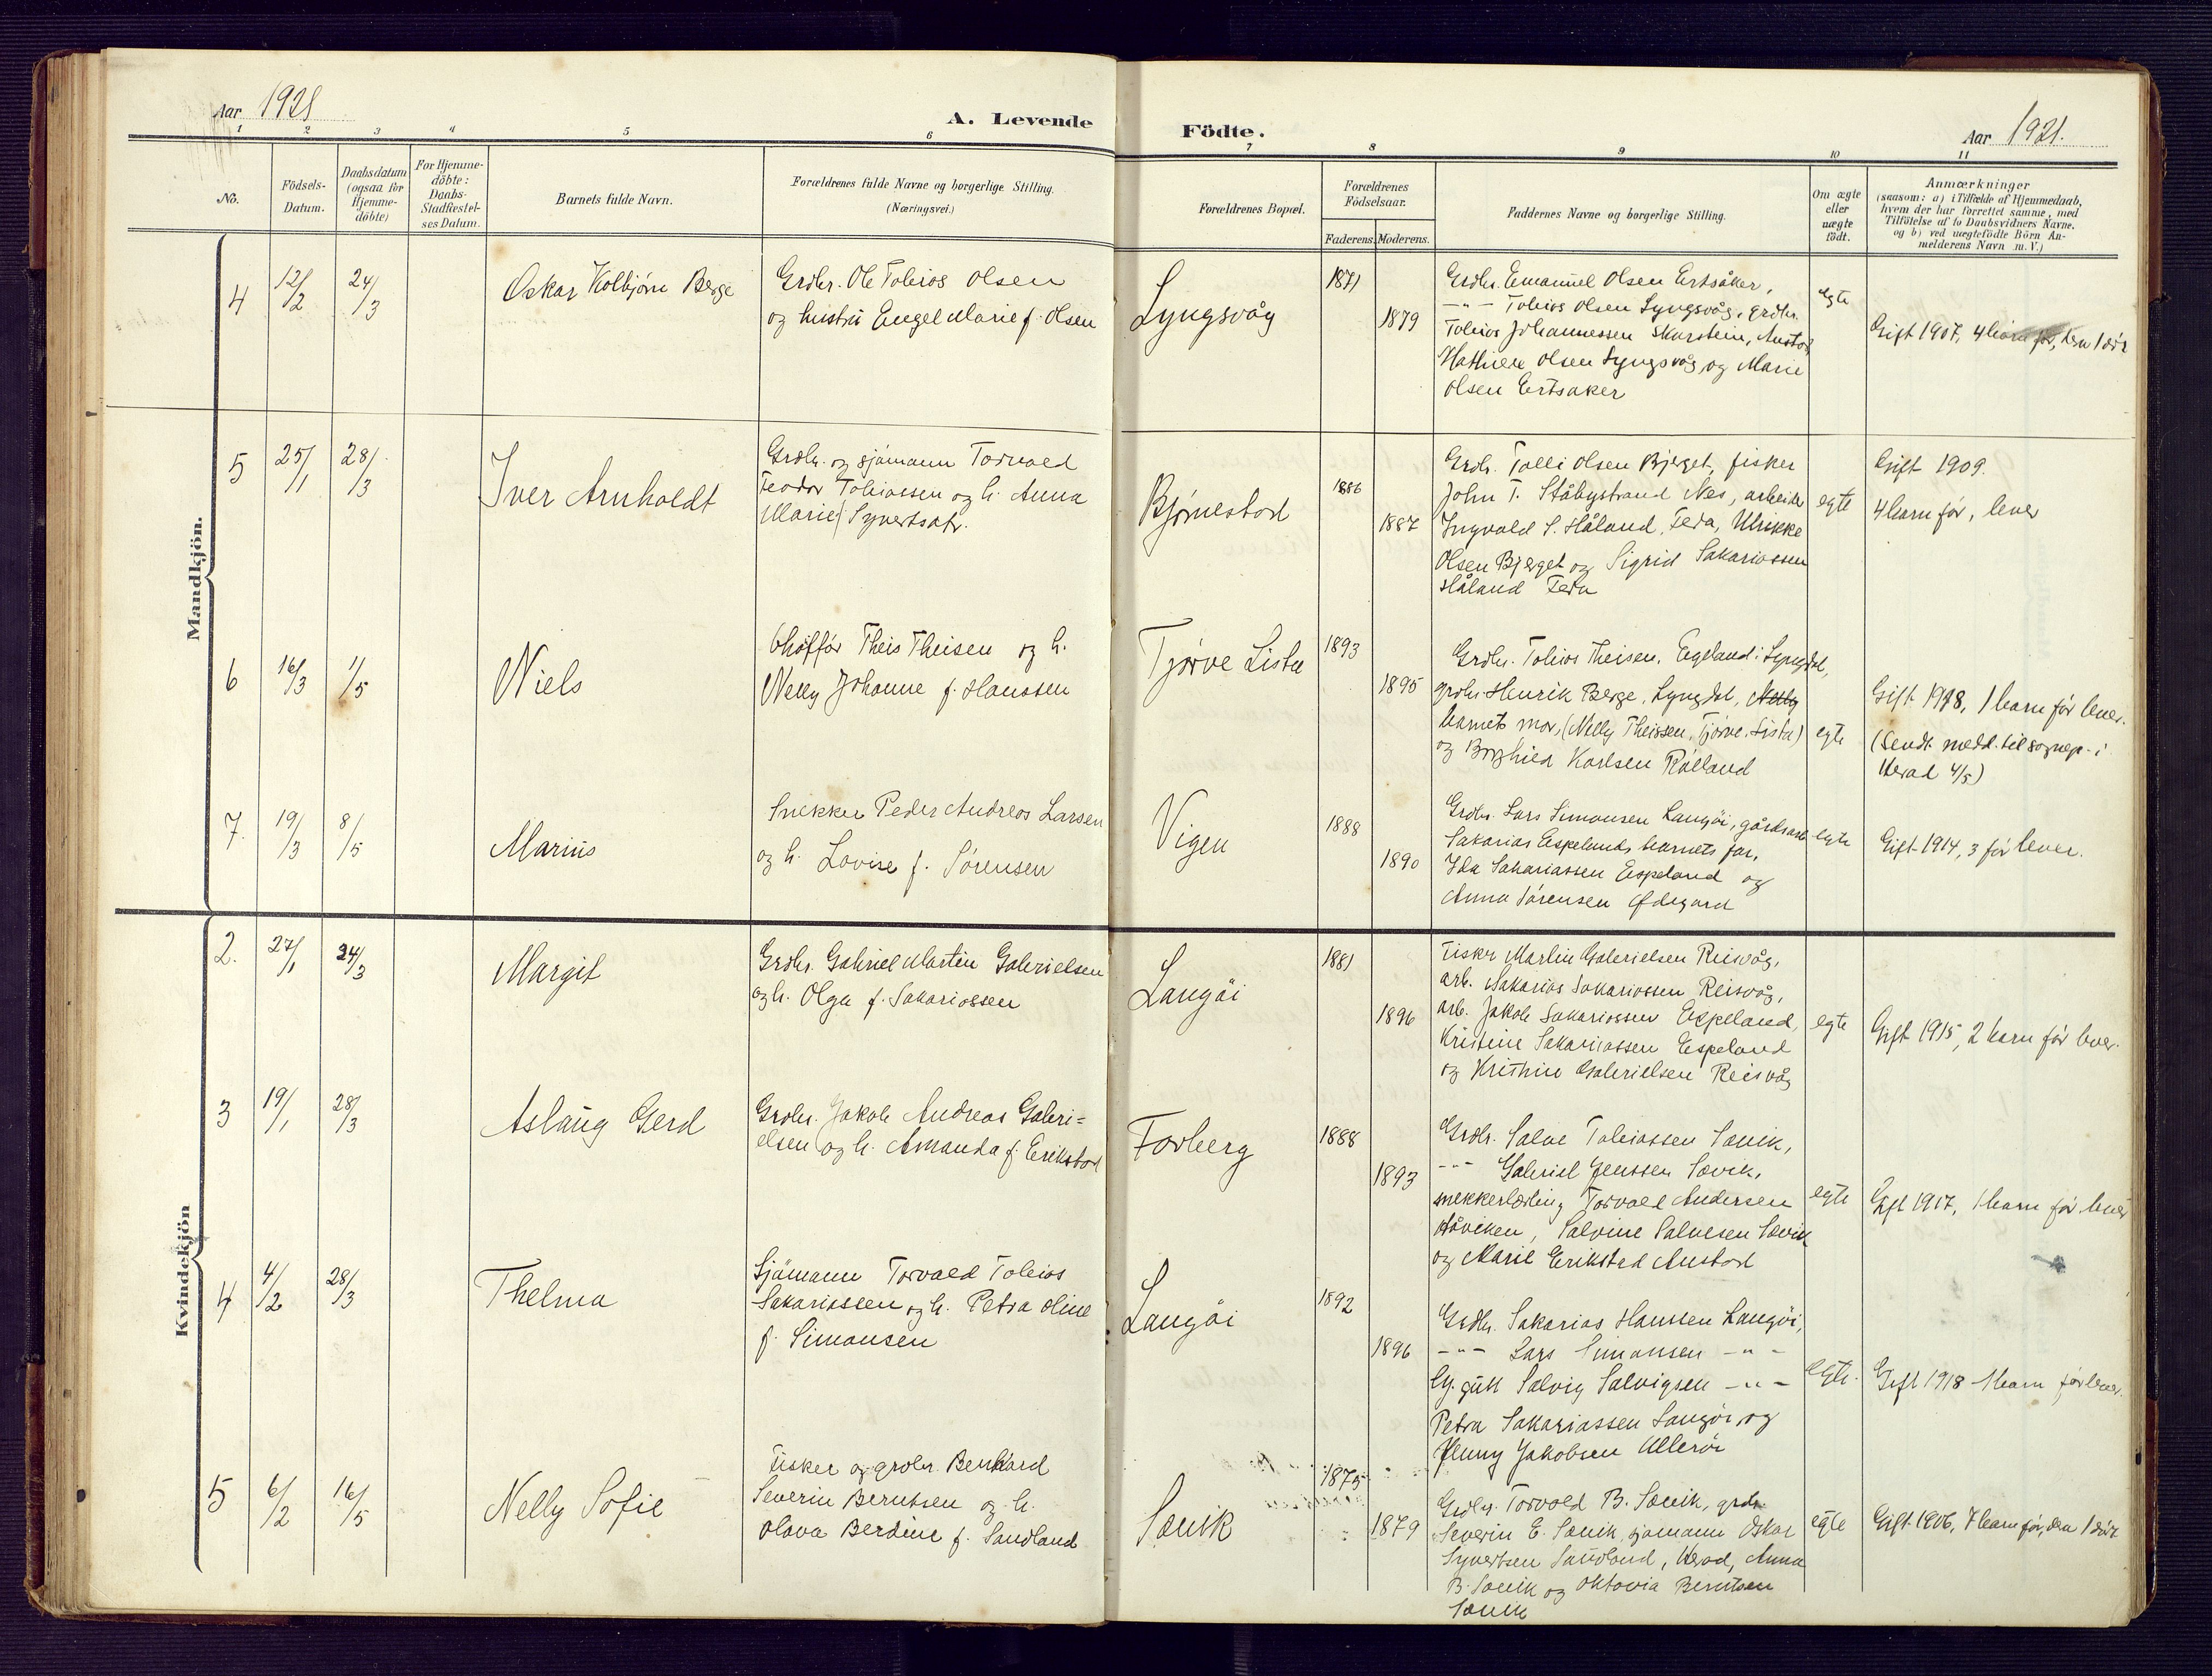 Aar 1921
A. Levende
Födte.
Aar 1921.
1 2 3 4 5 6 7 8 9 10 11
No.
Födsels-
Datum.
Daabsdatum
(ogsaa for
Hjemme-
döbte)
For Hjemme-
döbte:
Daabs-
Stadfæstel-
ses Datum.
Barnets fulde Navn.
Forældrenes fulde Navne og borgerlige Stilling.
(Næringsvei.)
Forældrenes Bopæl.
Forældrenes
Födselsaar.
Faderens. Moderens.
Faddernes Navne og borgerlige Stilling.
Om ægte
eller
uægte
födt.
Anmærkninger
(saasom: a) i Tilfælde af Hjemmedaab,
hvem der har forrettet samme, med
Tilföielse af to Daabsvidners Navne.
og b) ved uægtefödte Börn An-
melderens Navn m.V.)
Mandkjön.
4
12/2
24/3
Oskar Kolbjørn Berge
Grdbr. Ole Tobias Olsen
og hustru Engel Marie f. Olsen
Lyngsvåg
1871
1879
Grdbr. Emanuel Olsen Ertsåker,
-"- Tobias Olsen Lyngsvåg, grdbr.
Tobias Johannessen Skarstein, Austad
Mathilde Olsen Lyngsvåg og Marie
Olsen Ertsaker
egte
Gift 1907, 4 barn før, den 1 død
5
25/1
28/3
Iver Arnholdt
Grdbr. og sjømann Torvald
Teodor Tobiassen og h. Anna
Marie f Syvertsdtr.
Bjørnestad
1886
1887
Grdb. Tolli Olsen Bjerget, fisker
John T. Ståbystrand Nes, arbeider
Ingvald S. Håland, Feda, Ulrikke
Olsen Bjerget og Sigrid Sakariassen
Håland Feda
egte
Gift 1909.
4 barn før, lever
6
16/3
1/5
Niels
Chaffør Theis Theisen og h.
Nelly Johanne f. Hanssen
Tjørve Lista
1893
1895
Grdbr. Tobias Theisen, Egeland i Lyngdal,
grdbr. Henrik Berge, Lyngdal, Nelly
barnets mor, (Nelly Theissen, Tjørve, Lista)
og Borghild Karlsen Rålland
egte
Gift 1918, 1 barn før lever.
(Sendt meld. til sognep. i
Herad 4/5)
7.
19/3
8/5
Marius
Snekker Peder Andreas Larsen
og h. Lovise f. Sørensen
Vigen
1888
1890
Grdbr. Lars Simonsen Langøi, gårdsarb
Sakarias Espeland, barnets far,
Ida Sakariassen Espeland og
Anna Sørensen Ødegård
egte
Gift 1914, 3 før lever.
Kvindekjön
2.
27/1
24/3
Margit
Grdbr. Gabriel Martin Gabrielsen
og h. Olga f. Sakariassen
Langøi
1881
1896
Fisker Martin Gabrielsen Reisvåg,
arb. Sakarias Sakariassen Reisvåg,
arb. Jakob Sakariassen Espeland,
Kristine Sakariassen Espeland
og Kristine Gabrielsen Reisvåg
egte
Gift 1915, 2 barn før lever.
3
19/1
28/3
Aslaug Gerd
Grdbr. Jakob Andreas Gabri=
elsen og h. Amanda f. Erikstad
Forberg
1888
1893
Grdbr. Salve Tobiassen Sævik,
-"- Gabriel Jenssen Sævik,
snekkerlærling Torvald Andersen
Håviken, Salvine Salvesen Sævik
og Marie Erikstad Austad
egte
Gift 1917, 1 barn før lever
4
4/2
28/3
Thelma
Sjømann Torvald Tobias
Sakariassen og h. Petra Oline
f. Simonsen
Langøi
1892
1896
Grdbr. Sakarias Hanssen Langøi,
-"- Lars Simonsen -"-
Salvig Salvigsen -"-
Petra Sakariassen Langøi og
Jenny Jakobsen Ullerøi
egte.
Gift 1918 1 barn før lever.
5
6/2
16/5
Nelly Sofie
Fisker og grdbr. Bernhard
Severin Berntsen og h.
Olava Berdine f. Sandland
Sævik
1875
1879
Grdbr. Torvald B. Sævik, grdbr.
Severin E. Sævik, sjømann Oskar
Syvertsen Sandland, Herad, Anna
B. Sævik og Oktavia Berntsen
Sævik
egte
Gift 1906, 7 barn før, den 1 død